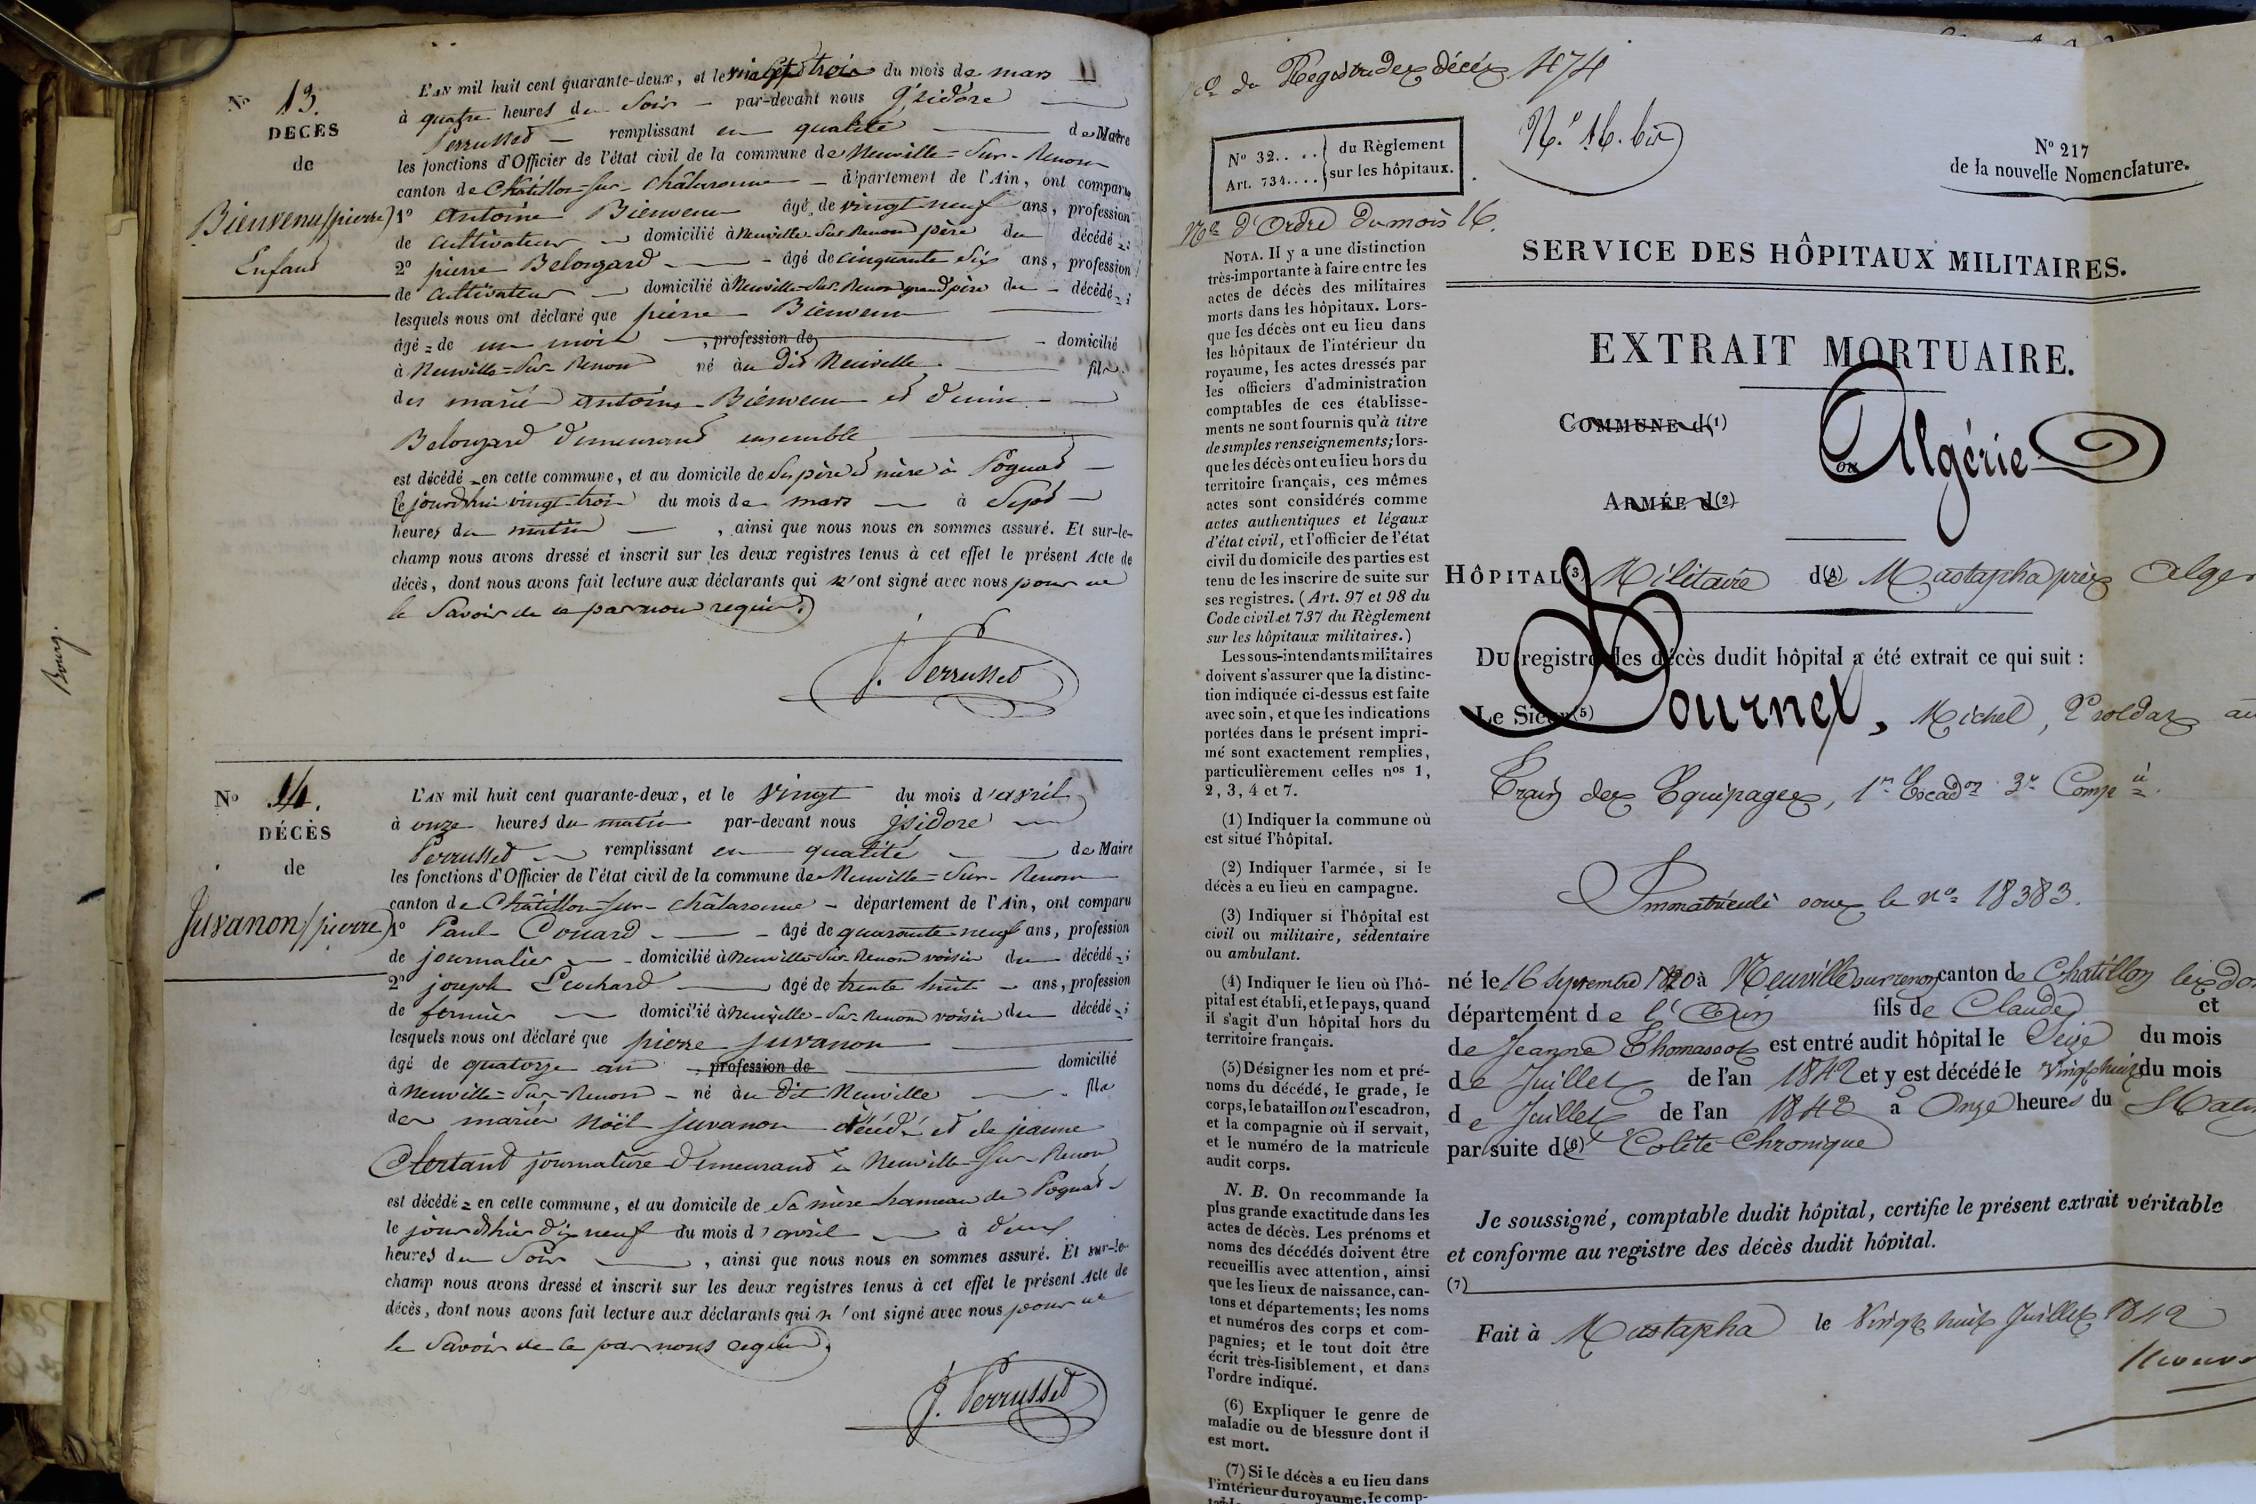 Bourg.
N° 13.
DÉCÈS
de
Bienvenu (pierre)
Enfant
L'AN mil huit cent quarante-deux, et le vingt trois du mois de mars
à quatre heures du Soir par-devant nous
Perrussed remplissant en qualité de Maire
les fonctions d'Officier de l'état civil de la commune de Neuville-Sur-Renom
canton de Châtillon-sur-châlaronne département de l'Ain, ont comparu
1° Antoine Bienvenu âgé de vingt neuf ans, profession
de cultivateur domicilié à Neuville-Sur-Renom père du décédé;
2° pierre Belouzard âgé de cinquante Six ans, profession
de cultivateur domicilié à Neuville-Sur-Renom grand père du décédé;
lesquels nous ont déclaré que pierre Bienvenu
âgé de un mois , profession de domicilié
à Neuville-Sur-Renom né au dit Neuville fils
des mariés Antoine Bienvenu et
Belouzard demeurant ensemble
est décédé en cette commune, et au domicile de Ses père et mère à Pognat
le jourd'hui vingt-trois du mois de mars à Sept
heures du matin , ainsi que nous nous en sommes assuré. Et sur-le-
champ nous avons dressé et inscrit sur les deux registres tenus à cet effet le présent Acte de
décès, dont nous avons fait lecture aux déclarants qui n'ont signé avec nous pour ne
le Savoir de ce par nous requis.
J. Perrussed
N° 14.
DÉCÈS
de
Juvanon (pierre)
L'AN mil huit cent quarante-deux, et le vingt du mois d'avril
à onze heures du matin par-devant nous ysidore
Perrussed remplissant en qualité de Maire
les fonctions d'Officier de l'état civil de la commune de Neuville-Sur-Renom
canton de Châtillon-sur-châlaronne département de l'Ain, ont comparu
1° Paul Couard âgé de quarante neuf ans, profession
de journalier domicilié à Neuville-Sur-Renom voisin du décédé;
2° joseph âgé de trente huit ans, profession
de fermier domicilié à Neuville-Sur-Renom voisin du décédé;
lesquels nous ont déclaré que pierre Juvanon
âgé de quatorze ans , profession de domicilié
à Neuville-Sur-Renom né au Dit Neuville fils
des mariés Noël Juvanon décédé et de jeanne
journalière demeurant à Neuville-Sur-Renom
est décédé en cette commune, et au domicile de Sa mère hameau de Pognat
le jour d'hier dix neuf du mois d'avril à deux
heures du Soir , ainsi que nous nous en sommes assuré. Et sur-le-
champ nous avons dressé et inscrit sur les deux registres tenus à cet effet le présent Acte de
décès, dont nous avons fait lecture aux déclarants qui n'ont signé avec nous pour ne
le Savoir de ce par nous requis.
J. Perrussed
N° du Registre des décès 474
N.° 16. bis
N° 32.... } du Règlement
Art. 734.... } sur les hôpitaux.
N° 217
de la nouvelle Nomenclature.
N° d'Ordre du mois 16.
SERVICE DES HÔPITAUX MILITAIRES.
EXTRAIT MORTUAIRE.
COMMUNE d(1)
ou Algérie
ARMÉE d(2)
HÔPITAL(3) Militaire d(4) Mustapha près Alger
Du registre des décès dudit hôpital a été extrait ce qui suit :
Le Sieur(5) Bournet, Michel, 2e soldat au
Train des Equipages, 1er Escadon 3e Compie
Immatriculé sous le n° 18383.
né le 16 Septembre 1820 à Neuville sur renon canton de Chatillon
département de l'Ain fils de Claude et
de Jeanne Thomasson est entré audit hôpital le Seize du mois
de Juillet de l'an 1842 et y est décédé le vingt huit du mois
de Juillet de l'an 1842 à Onze heures du Matin
par suite d(6) Colite Chronique
Je soussigné, comptable dudit hôpital, certifie le présent extrait véritable
et conforme au registre des décès dudit hôpital.
(7)
Fait à Mustapha le Vingt huit Juillet 1842
NOTA. Il y a une distinction
très-importante à faire entre les
actes de décès des militaires
morts dans les hôpitaux. Lors-
que les décès ont eu lieu dans
les hôpitaux de l'intérieur du
royaume, les actes dressés par
les officiers d'administration
comptables de ces établisse-
ments ne sont fournis qu'à titre
de simples renseignements; lors-
que les décès ont eu lieu hors du
territoire français, ces mêmes
actes sont considérés comme
actes authentiques et légaux
d'état civil, et l'officier de l'état
civil du domicile des parties est
tenu de les inscrire de suite sur
ses registres. (Art. 97 et 98 du
Code civil et 737 du Règlement
sur les hôpitaux militaires.)
Les sous-intendants militaires
doivent s'assurer que la distinc-
tion indiquée ci-dessus est faite
avec soin, et que les indications
portées dans le présent impri-
mé sont exactement remplies,
particulièrement celles nos 1,
2, 3, 4 et 7.
(1) Indiquer la commune où
est situé l'hôpital.
(2) Indiquer l'armée, si le
décès a eu lieu en campagne.
(3) Indiquer si l'hôpital est
civil ou militaire, sédentaire
ou ambulant.
(4) Indiquer le lieu où l'hô-
pital est établi, et le pays, quand
il s'agit d'un hôpital hors du
territoire français.
(5) Désigner les nom et pré-
noms du décédé, le grade, le
corps, le bataillon ou l'escadron,
et la compagnie où il servait,
et le numéro de la matricule
audit corps.
N. B. On recommande la
plus grande exactitude dans les
actes de décès. Les prénoms et
noms des décédés doivent être
recueillis avec attention, ainsi
que les lieux de naissance, can-
tons et départements; les noms
et numéros des corps et com-
pagnies; et le tout doit être
écrit très-lisiblement, et dans
l'ordre indiqué.
(6) Expliquer le genre de
maladie ou de blessure dont il
est mort.
(7) Si le décès a eu lieu dans
l'intérieur du royaume, le comp-